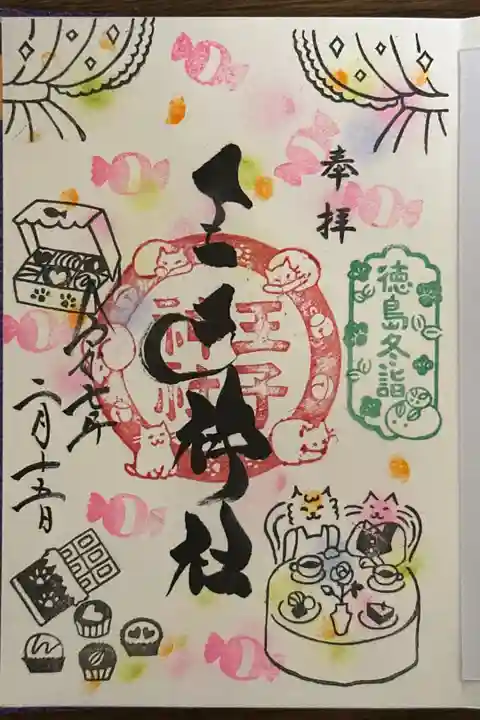 奉拝
徳島冬詣
王子神社
王子
神社
令和七年
二月十五日